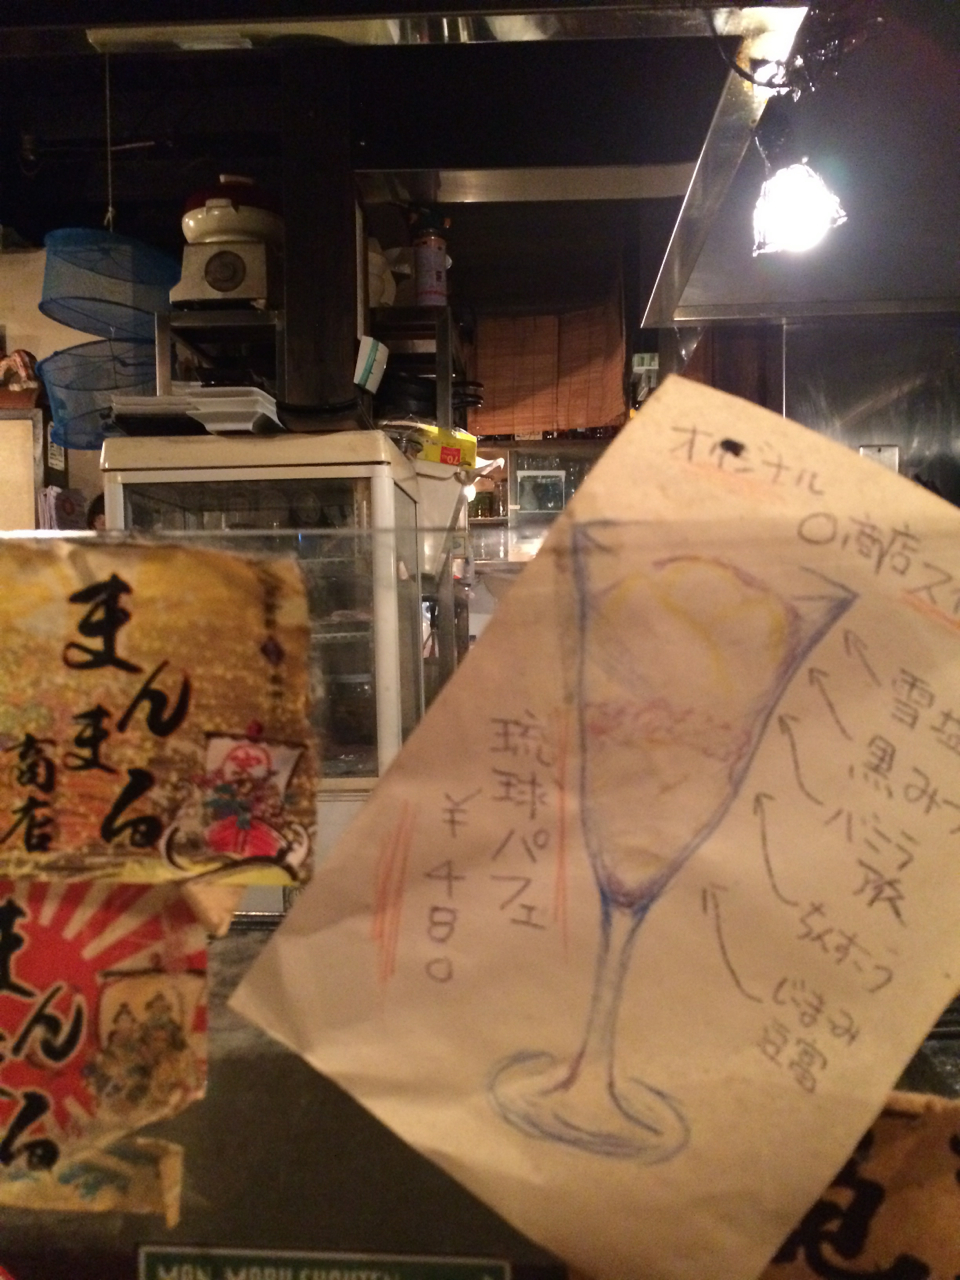 オリジナル
〇商店スイ
雪塩
黒みつ
バニラ
アイス
ちんすこう
じまみ
豆富
琉球パフェ
¥480
まんまる
商店
まんまる
MAN MARU SHOUTEN